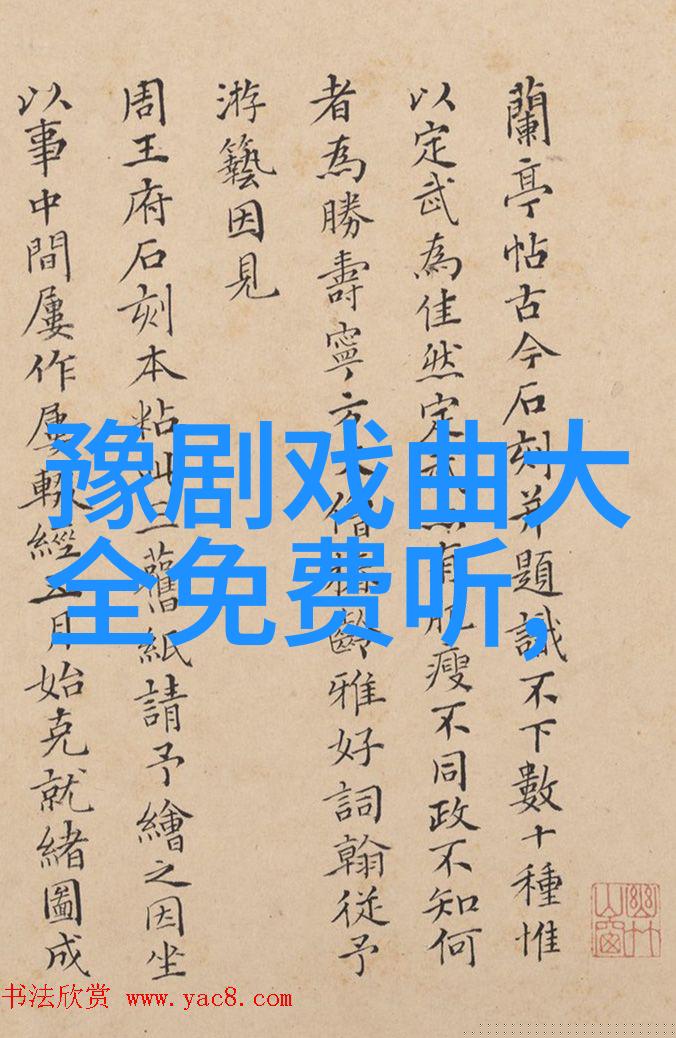 蘭亭帖古今石刻并題識不下數十種惟
以定武為佳然定武有肥瘦不同政不知何
者為勝壽寧方齡雅好詞翰從予
游藝因見
周王府石刻本粘舊紙請予繪之因坐
以事中間屢作屢輟經五月始克就緒圖成
豫剧戏曲大
全免费听,
幽竹山窗
书法欣赏 www.yac8.com